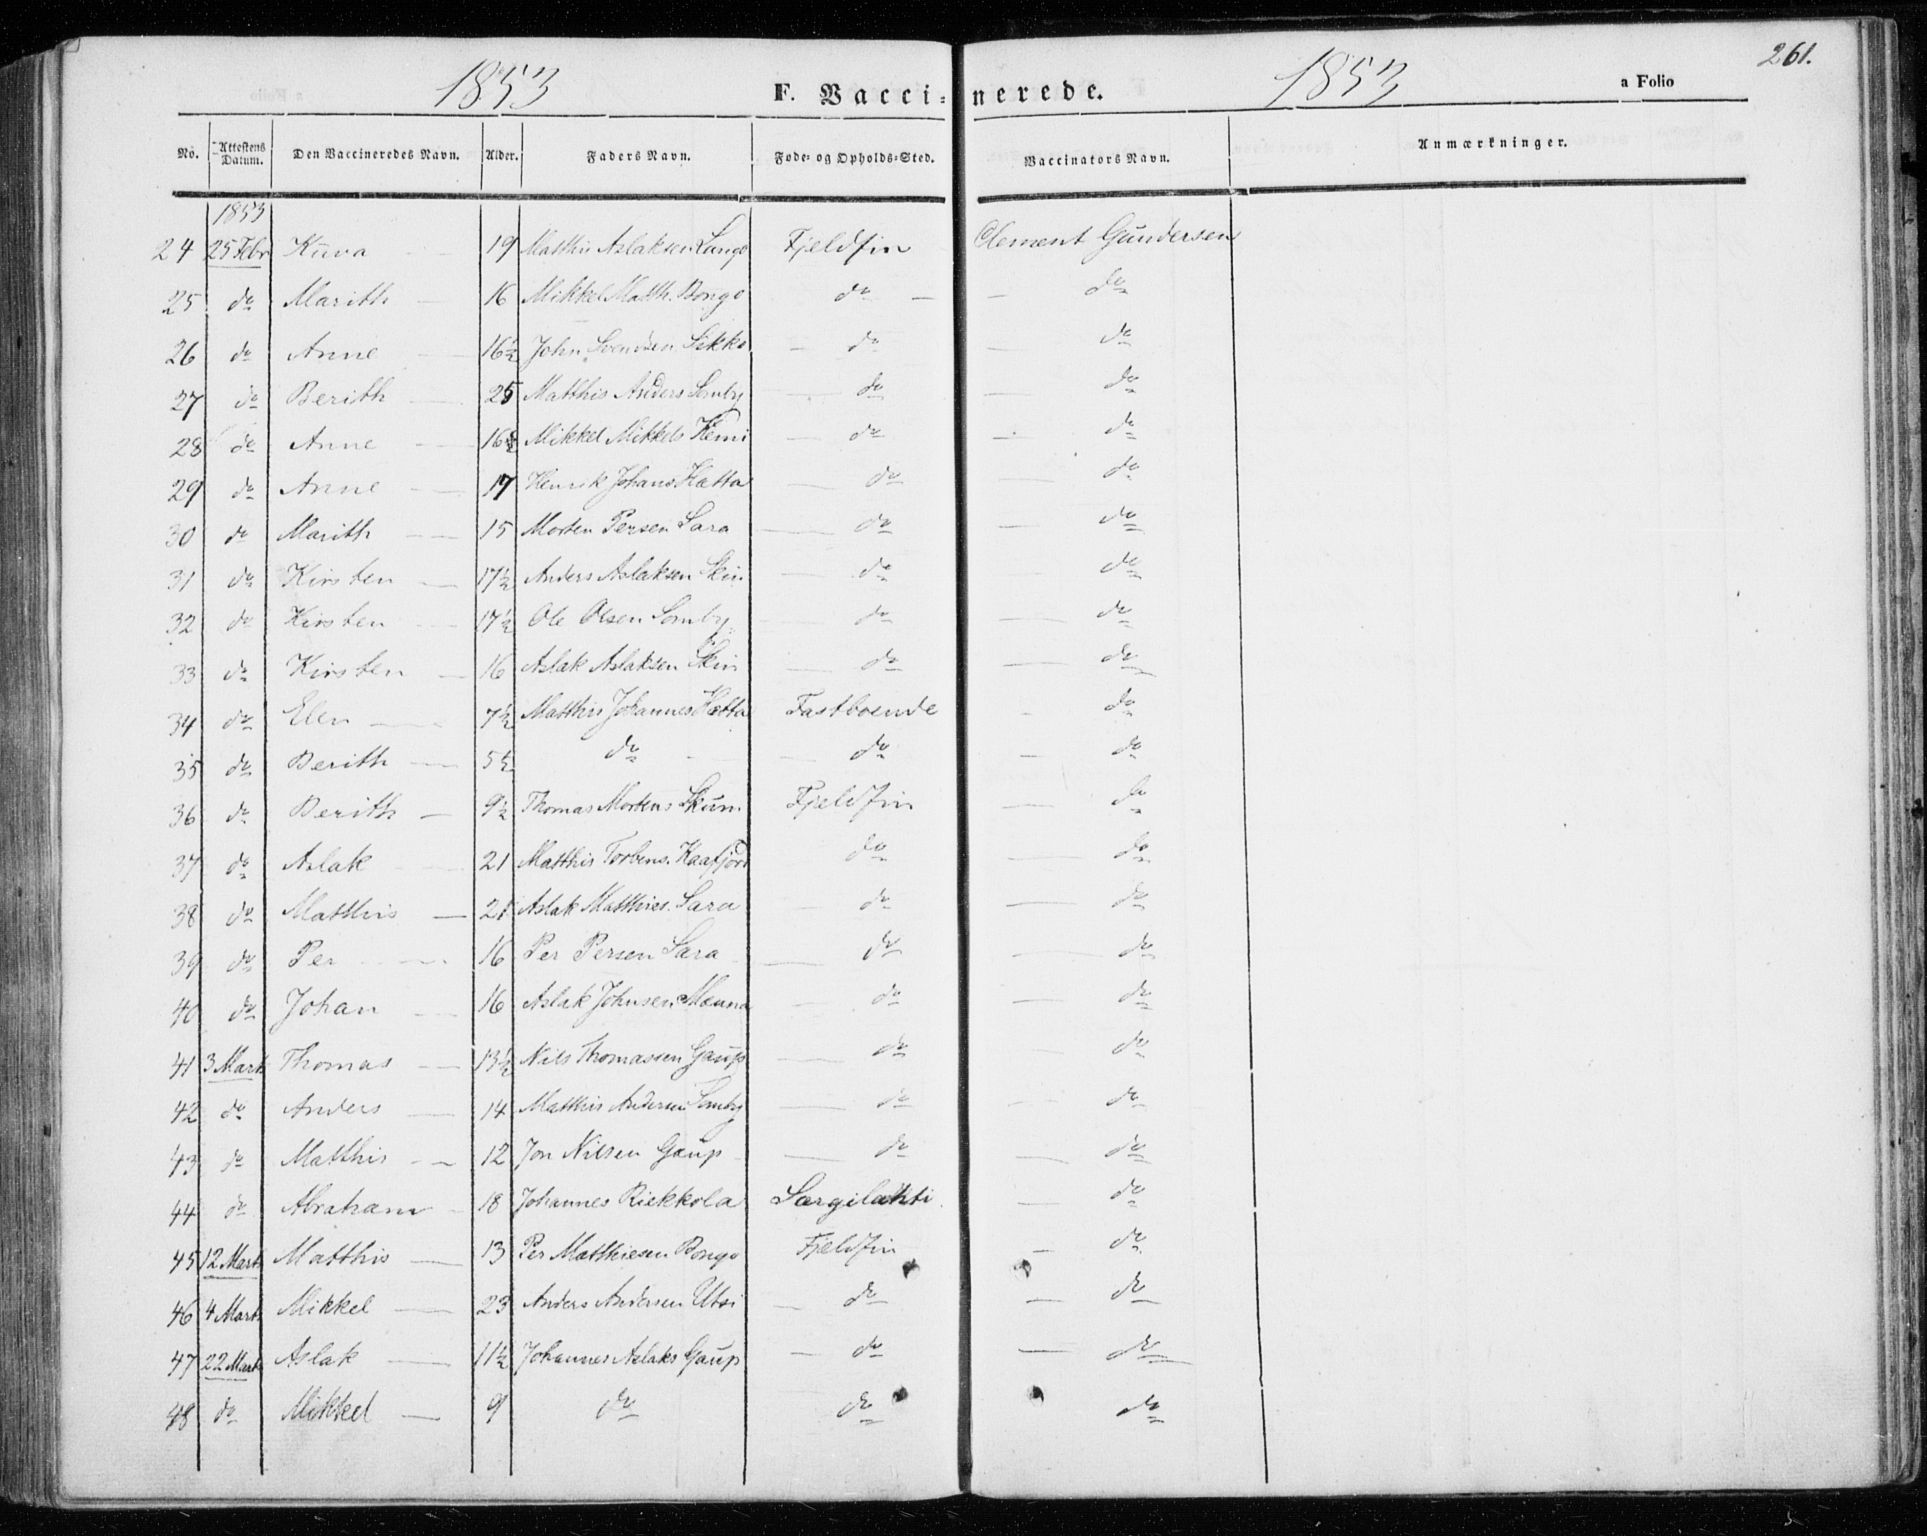 261.
1853 F. Vaccinerede. 1853 a Folio
No. Attestens Datum. Den Vaccineredes Navn. Alder. Faders Navn. Føde- og Opholds-Sted. Vaccinators Navn. Anmærkninger.
1853
24 25 Febr Kuva 19 Matthis Aslaksen Lango Fjeldfin Clement Gundersen
25 do Marith 16 Mikkel Matth. Bongo do do
26 do Anne 16½ John Svendsen Sikko do do
27 do Berith 25 Matthis Anders Somby do do
28 do Anne 16½ Mikkel Mikkels Kemi do do
29 do Anne 17 Henrik Johans Hætta do do
30 do Marith 15 Morten Persen Sara do do
31 do Kirsten 17½ Anders Aslaksen Skin do do
32 do Kirsten 17½ Ole Olsen Somby do do
33 do Kirsten 16 Aslak Aslaksen Skin do do
34 do Elen 7½ Matthis Johannes Hætta Fastboende do
35 do Berith 5½ do do do
36 do Berith 9½ Thomas Mortens Skum Fjeldfin do
37 do Aslak 21 Matthis Torbens. Kaafjord do do
38 do Matthis 21 Aslak Matthies. Sara do do
39 do Per 16 Per Persen Sara do do
40 do Johan 16 Aslak Johnsen Mauna do do
41 3 Marts Thomas 13½ Nils Thomassen Gaup do do
42 do Anders 14 Matthis Andersen Somby do do
43 do Matthis 12 Jon Nilsen Gaup do do
44 do Abraham 18 Johannes Riekkola Sargilahti do
45 12 Marts Matthis 13 Per Matthiesen Bongo Fjeldfin do
46 4 Marts Mikkel 23 Anders Andersen Utsi do do
47 22 Marts Aslak 11½ Johannes Aslaks Gaup do do
48 do Mikkel 9 do do do